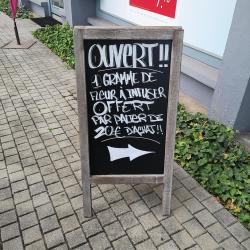 OUVERT!!
1 GRAMME DE
FLEUR À INFUSER
OFFERT
PAR PALIER DE
20€ D'ACHAT!!